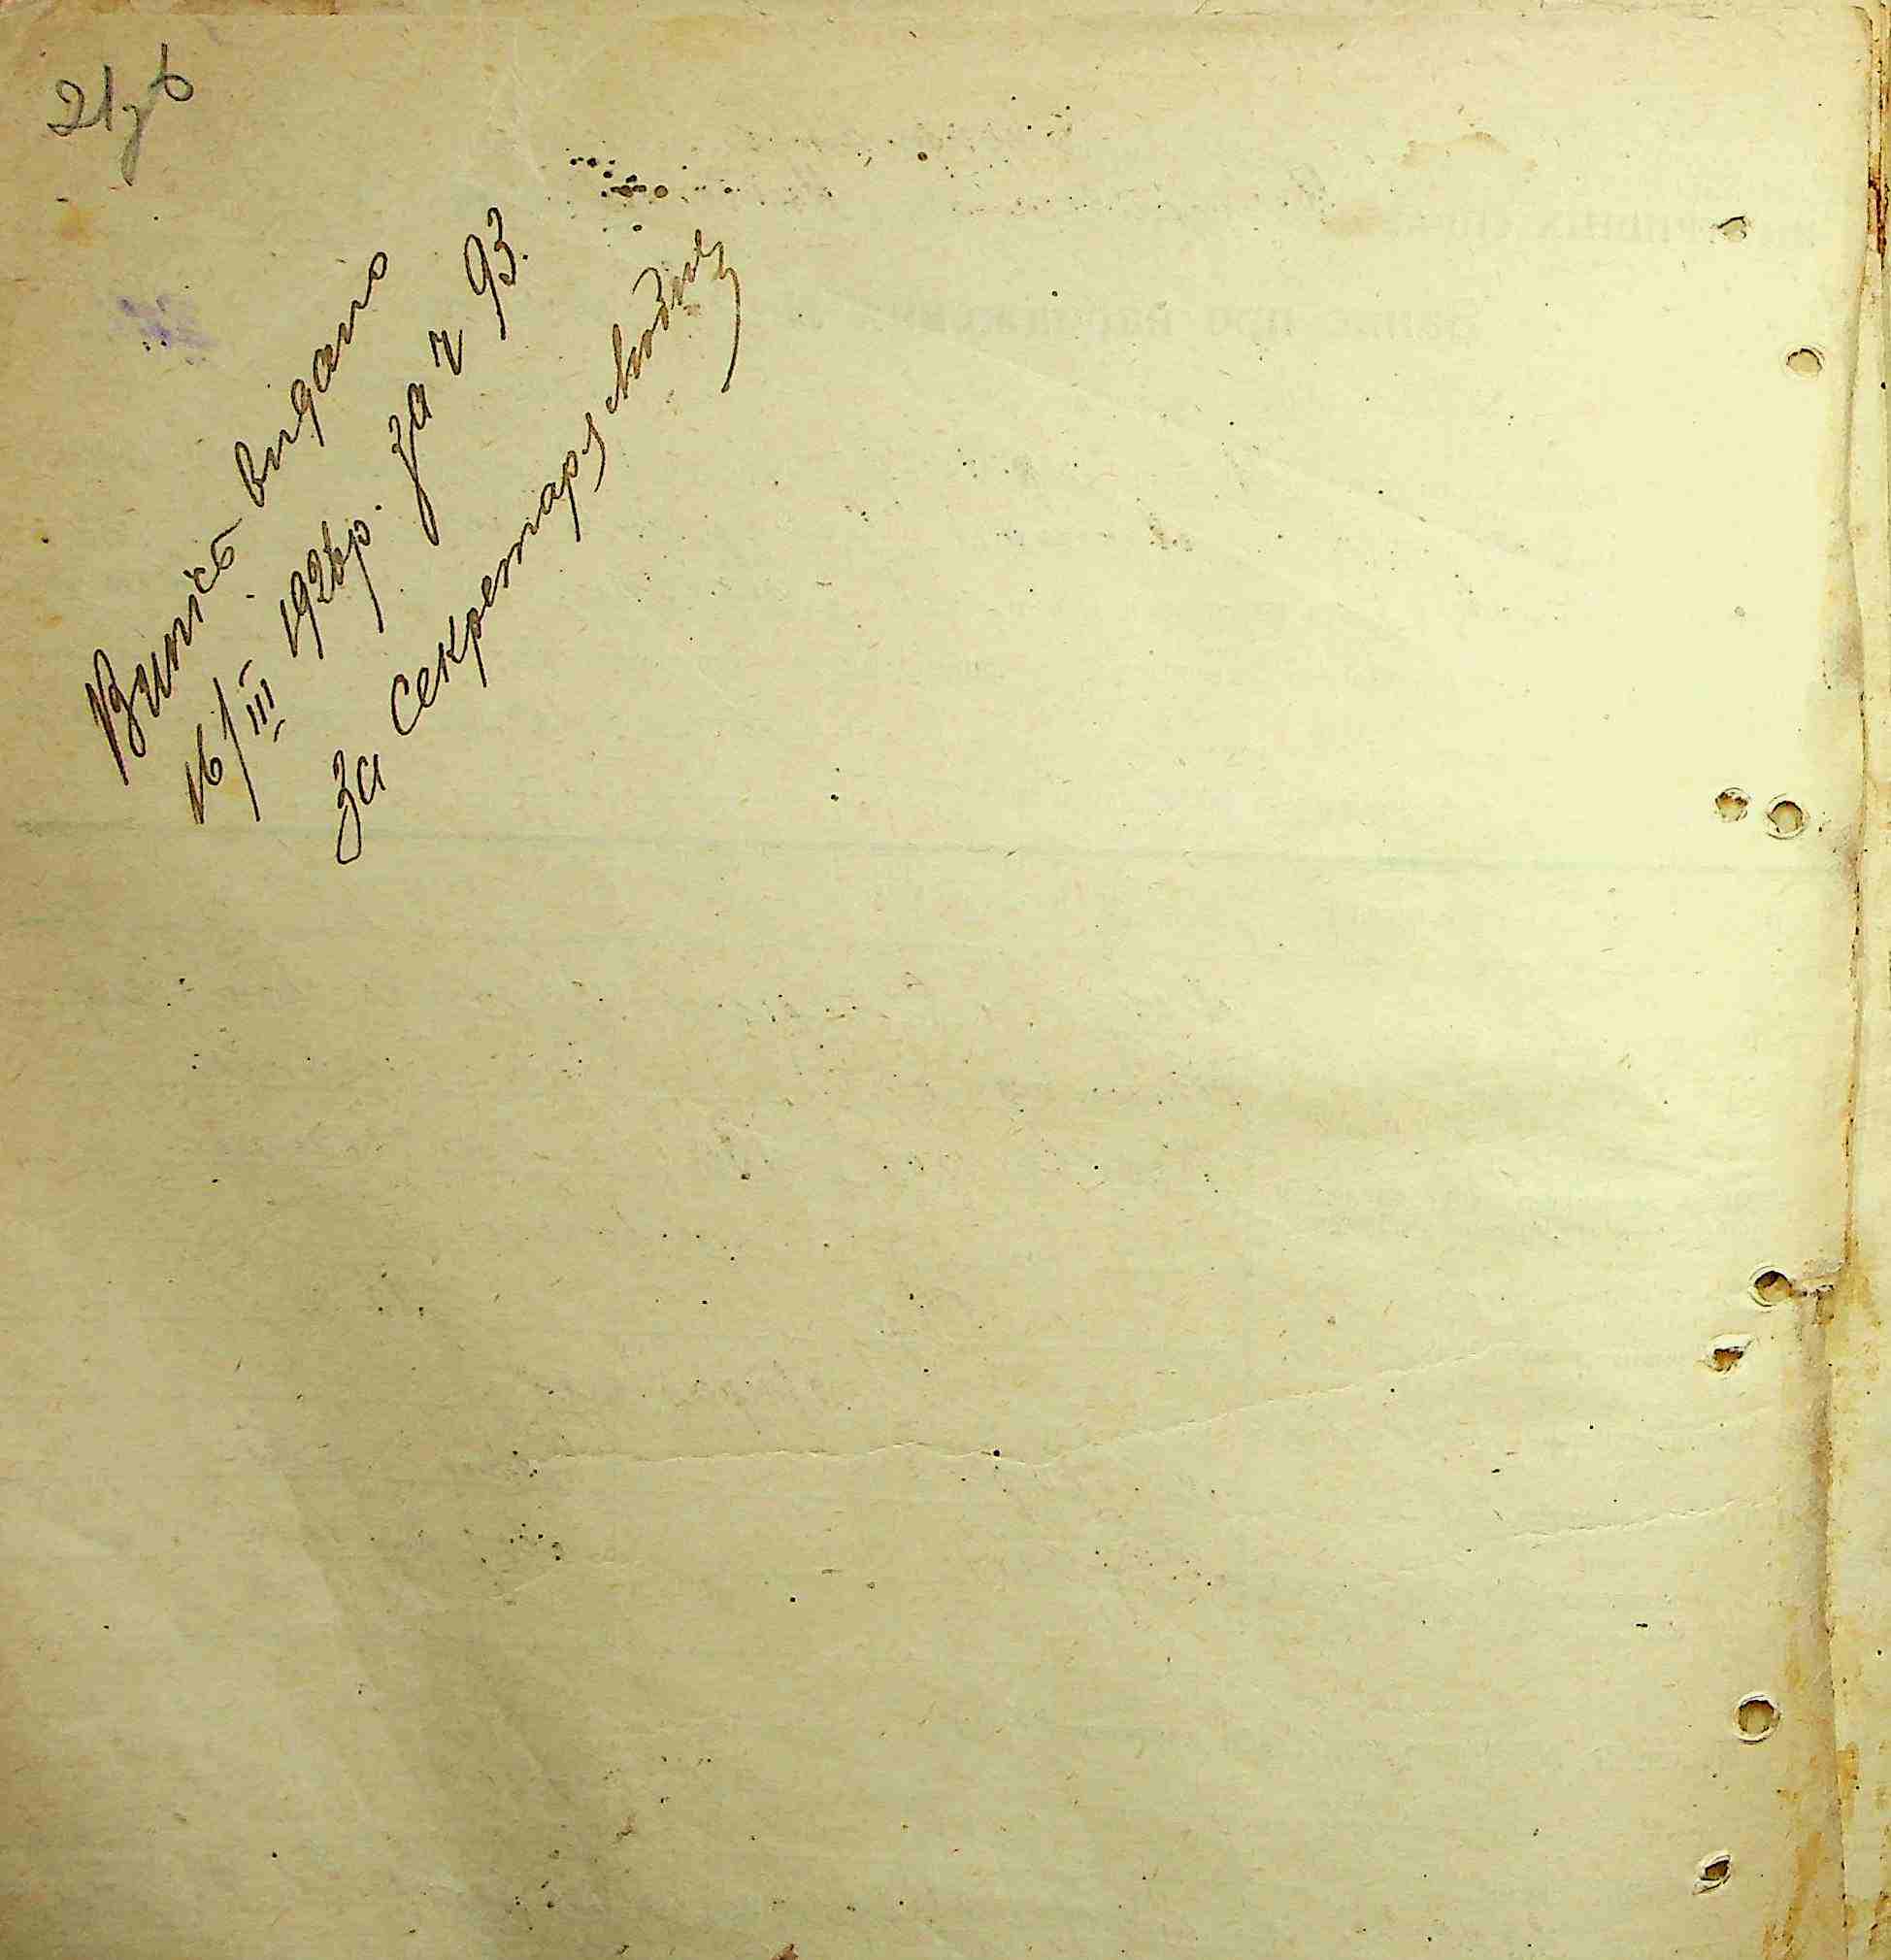 21зв
Випісь видано
16/III 1926р. за ч 93.
За секретаря